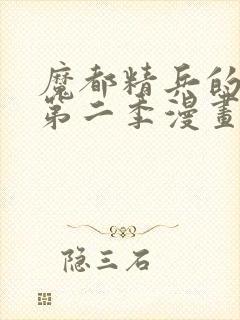 魔都精兵的
第二季漫畫
隐三石